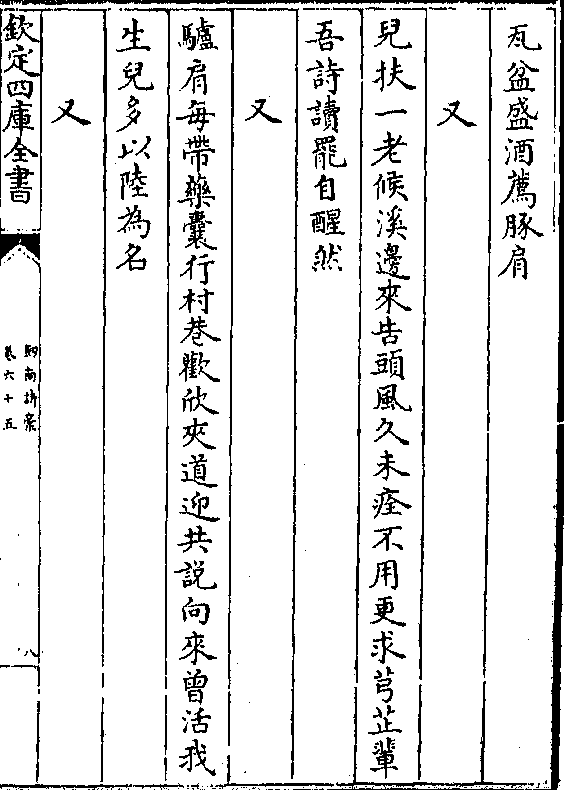 瓦盆盛酒薦豚肩
又
兒扶一老候溪邊來告頭風久未痊不用更求芎芷輩
吾詩讀罷自醒然
又
驢肩每帶藥囊行村巷歡欣夾道迎共說向來曾活我
生兒多以陸為名
又
欽定四庫全書
劍南詩藁
卷六十五
八